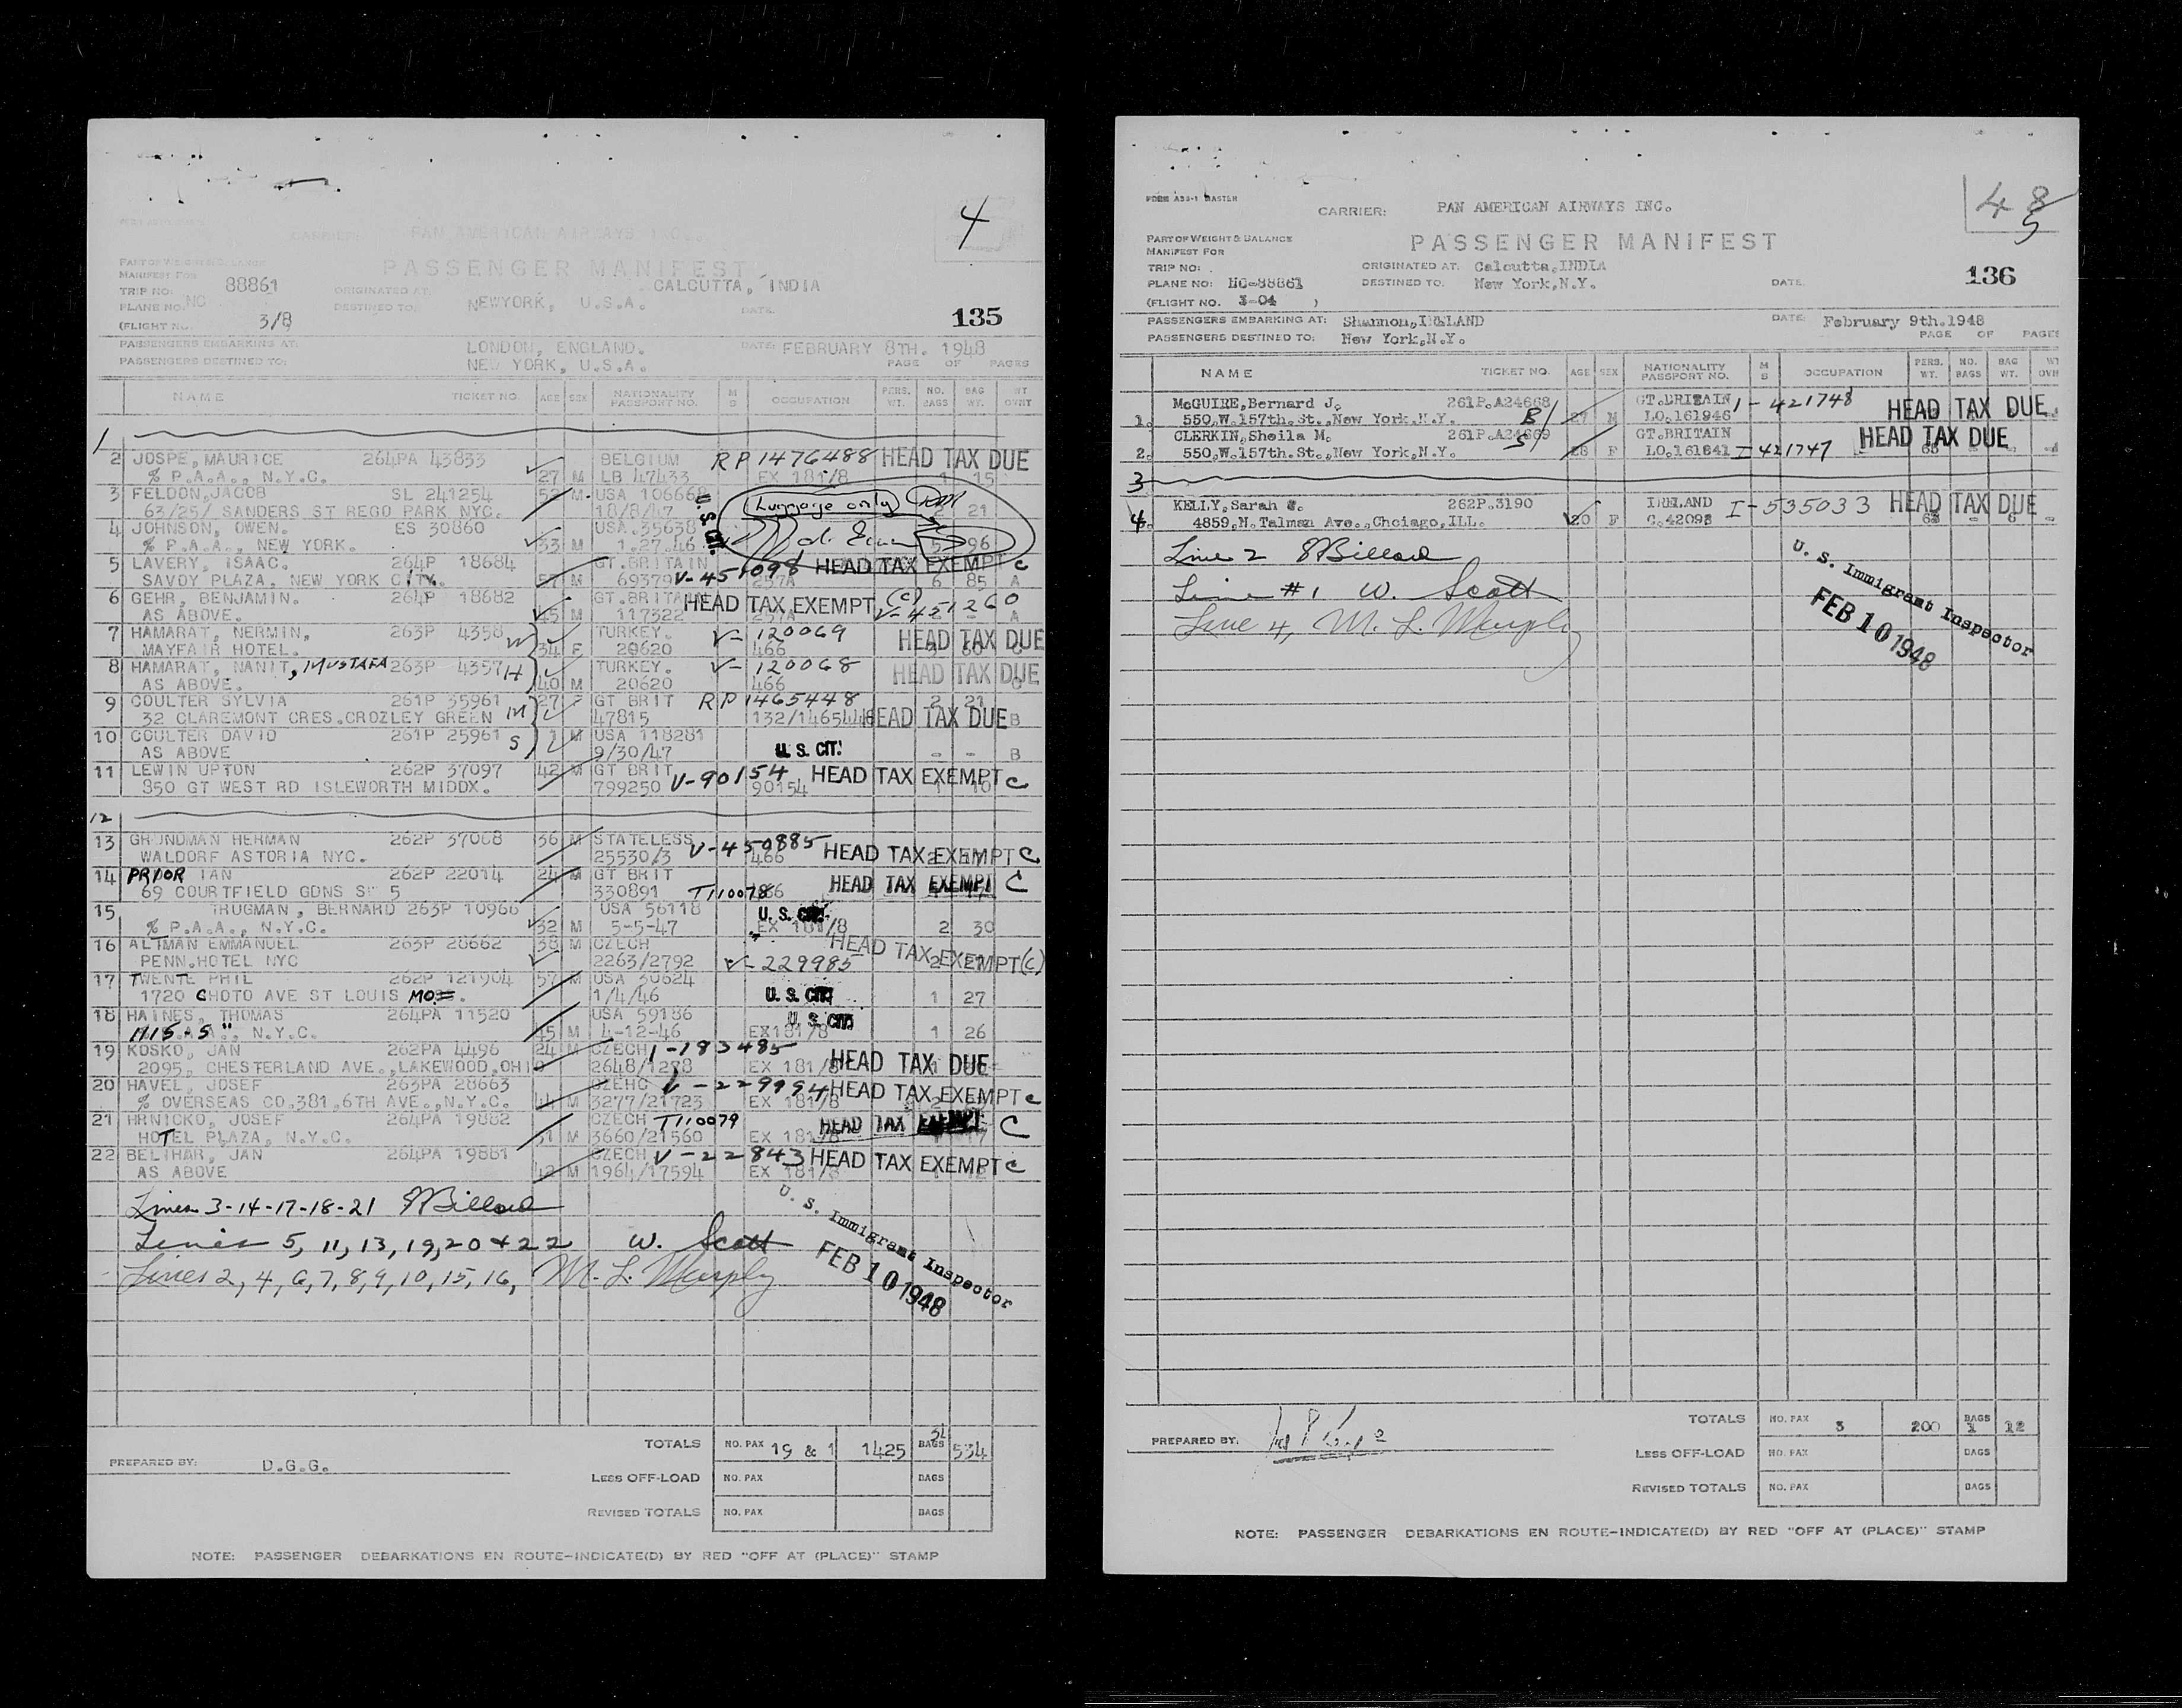 4
CARRIER: PAN AMERICAN AIRWAYS INC.
PART OF WEIGHT & BALANCE
MANIFEST FOR
PASSENGER MANIFEST
TRIP NO: 88861
ORIGINATED AT: CALCUTTA, INDIA
PLANE NO. NC
DESTINED TO: NEWYORK, U.S.A. DATE:
(FLIGHT NO. 3/8
135
PASSENGERS EMBARKING AT: LONDON, ENGLAND. DATE: FEBRUARY 8TH. 1948
PASSENGERS DESTINED TO: NEW YORK, U.S.A. PAGE OF PAGES
NAME TICKET NO. AGE SEX NATIONALITY PASSPORT NO. M S OCCUPATION PERS. WT. NO. BAGS BAG WT. WT OVHT
1
2 JOSPE, MAURICE 264PA 43833 BELGIUM RP 1476488 HEAD TAX DUE
% P.A.A., N.Y.C. 27 M LB 47433 EX 181/8 1 15
3 FELDON, JACOB SL 241254 M USA 106668 U.S. CIT. Luggage only
63/25/ SANDERS ST REGO PARK NYC. 18/8/47 2 21
4 JOHNSON, OWEN. ES 30860 USA.35638
% P.A.A., NEW YORK. 33 M 1.27.46 5 96
5 LAVERY, ISAAC. 264P 18684 GT.BRITAIN HEAD TAX EXEMPT C
SAVOY PLAZA, NEW YORK CITY. 57 M 69379 V-451098 257A 6 85 A
6 GEHR, BENJAMIN. 264P 18682 GT.BRITAIN HEAD TAX EXEMPT (C) V-451260
AS ABOVE. 45 M 117322 257A - - A
7 HAMARAT, NERMIN, 263P 4358 W TURKEY. V-120069 HEAD TAX DUE
MAYFAIR HOTEL. 34 F 20620 466 60
8 HAMARAT, NANIT, MUSTAFA 263P 4357 H TURKEY. V-120068 HEAD TAX DUE
AS ABOVE. 40 M 20620 466
9 COULTER SYLVIA 261P 35961 27 F GT BRIT RP 1465448 2 21
32 CLAREMONT CRES.CROZLEY GREEN M 47815 132/1465448 HEAD TAX DUE B
10 COULTER DAVID 261P 25961 S 1 M USA 118281 U.S. CIT.
AS ABOVE 9/30/47 - - B
11 LEWIN UPTON 262P 37097 42 M GT BRIT V-90154 HEAD TAX EXEMPT C
850 GT WEST RD ISLEWORTH MIDDX. 799250 90154 1 10
12
13 GRUNDMAN HERMAN 262P 37068 36 M STATELESS V-450885 HEAD TAX EXEMPT C
WALDORF ASTORIA NYC. 25530/3 466
14 PRIOR IAN 262P 22014 24 M GT BRIT HEAD TAX EXEMPT C
69 COURTFIELD GDNS SW 5 330891 T110078
15 TRUGMAN, BERNARD 263P 10966 USA 56118 U.S. CIT.
% P.A.A., N.Y.C. 32 M 5-5-47 EX 181/8 2 30
16 ALTMAN EMMANUEL 263P 28662 38 M CZECH HEAD TAX EXEMPT (C)
PENN.HOTEL NYC 2263/2792 V-229985
17 TWENTE PHIL 262P 121904 57 M USA 30624
1720 CHOTO AVE ST LOUIS MO. 1/4/46 U.S. CIT. 1 27
18 HAINES, THOMAS 264PA 11520 USA 59186 U.S. CIT.
N.Y.C. 45 M 4-12-46 EX181/8 1 26
19 KOSKO, JAN 262PA 4496 24 M CZECH I-183485
2095, CHESTERLAND AVE.,LAKEWOOD.OHIO 2648/1278 EX 181/8 HEAD TAX DUE
20 HAVEL, JOSEF 263PA 28663 CZEHC V-229994 HEAD TAX EXEMPT C
% OVERSEAS CO.381.6TH AVE.,N.Y.C. 44 M 3277/21723 EX 181/8
21 HRNICKO, JOSEF 264PA 19882 CZECH T110079 HEAD TAX EXEMPT C
HOTEL PLAZA, N.Y.C. 31 M 3660/21560 EX 181/8 17
22 BELIHAR, JAN 264PA 19881 CZECH V-22843 HEAD TAX EXEMPT C
AS ABOVE 42 M 1964/17594 EX 181/8
Lines 3-14-17-18-21 Billard
Lines 5, 11, 13, 19, 20 + 22 W. Scott
Lines 2, 4, 6, 7, 8, 9, 10, 15, 16, M. L. Murphy
U. S. Immigrant Inspector
FEB 10 1948
TOTALS NO. PAX 19 & 1 1425 BAGS 534
PREPARED BY: D.G.G.
LESS OFF-LOAD NO. PAX BAGS
REVISED TOTALS NO. PAX BAGS
NOTE: PASSENGER DEBARKATIONS EN ROUTE-INDICATE(D) BY RED "OFF AT (PLACE)" STAMP
48
5
FORM ABS-1 MASTER
CARRIER: PAN AMERICAN AIRWAYS INC.
PART OF WEIGHT & BALANCE
MANIFEST FOR
PASSENGER MANIFEST
TRIP NO: ORIGINATED AT. Calcutta,INDIA
136
PLANE NO: NC-88861 DESTINED TO. New York,N.Y. DATE.
(FLIGHT NO. 3-04 )
PASSENGERS EMBARKING AT: Shannon,IRELAND DATE: February 9th.1948
PASSENGERS DESTINED TO: New York,N.Y. PAGE OF PAGES
NAME TICKET NO. AGE SEX NATIONALITY PASSPORT NO. M S OCCUPATION PERS. WT. NO. BAGS BAG WT. WT OVH
McGUIRE,Bernard J. 261P.A24668 GT.BRITAIN I-421748 HEAD TAX DUE
1. 550,W.157th.St.,New York.N.Y. B 27 M LO.161946
CLERKIN,Sheila M. 261P.A24669 GT.BRITAIN HEAD TAX DUE
2. 550,W.157th.St.,New York,N.Y. S 28 F LO.161841 I-421747
3
KELLY,Sarah 262P.3190 IRELAND I-535033 HEAD TAX DUE
4. 4859,N.Talman Ave.,Choiago,ILL. 20 F C.42098
Line 2 Billard
Line #1 W. Scott
Line 4, M. L. Murphy
U. S. Immigrant Inspector
FEB 10 1948
TOTALS NO. PAX 3 200 BAGS 1 12
PREPARED BY.
LESS OFF-LOAD NO. PAX BAGS
REVISED TOTALS NO. PAX BAGS
NOTE: PASSENGER DEBARKATIONS EN ROUTE-INDICATE(D) BY RED "OFF AT (PLACE)" STAMP